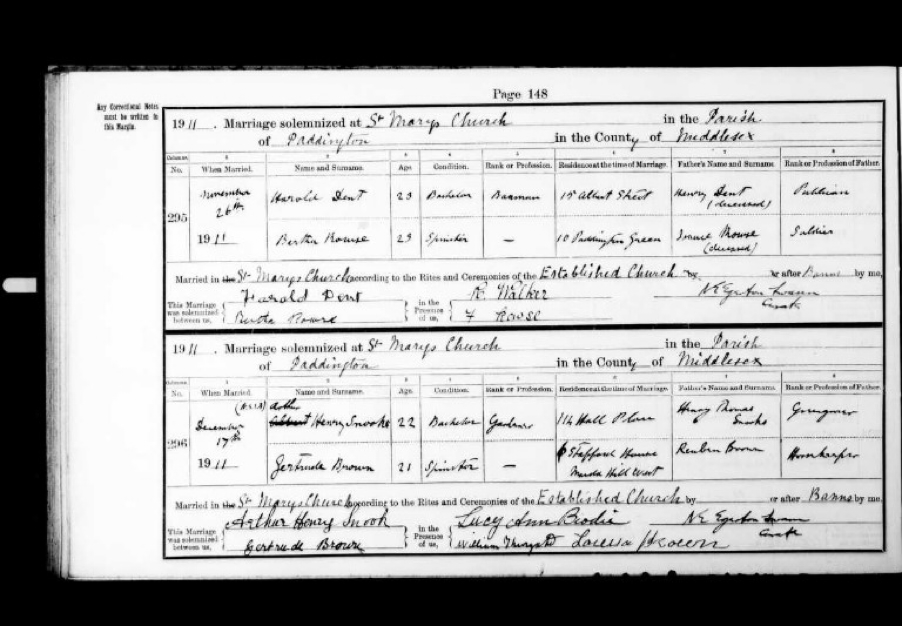 Page 148
Any Correctional Notes
must be written in
this Margin.
19 11 . Marriage solemnized at St Marys Church in the Parish
of Paddington in the County of Middlesex
Columns. 1 2 3 4 5 6 7 8
No. When Married. Name and Surname. Age. Condition. Rank or Profession. Residence at the time of Marriage. Father's Name and Surname. Rank or Profession of Father.
295 November 26th 1911 Harold Dent 23 Bachelor Barman 15 Albert Street Henry Dent (deceased) Publican
Bertha Rowse 23 Spinster — 10 Paddington Green Rowse (deceased) Soldier
Married in the St Marys Church according to the Rites and Ceremonies of the Established Church by or after Banns by me,
This Marriage was solemnized between us, Harold Dent in the Presence of us, R. Walker N E Egerton Swann
Bertha Rowse F Rowse Curate
19 11 . Marriage solemnized at St Marys Church in the Parish
of Paddington in the County of Middlesex
Columns. 1 2 3 4 5 6 7 8
No. When Married. Name and Surname. Age. Condition. Rank or Profession. Residence at the time of Marriage. Father's Name and Surname. Rank or Profession of Father.
296 December 17th 1911 Arthur Henry Snooks 22 Bachelor Gardener 114 Hall Place Henry Thomas Snooks Greengrocer
Gertrude Brown 21 Spinster — 6 Stafford House Maida Hill West Reuben Brown Horsekeeper
Married in the St Marys Church according to the Rites and Ceremonies of the Established Church by or after Banns by me,
This Marriage was solemnized between us, Arthur Henry Snook in the Presence of us, Lucy Ann Brodie N E Egerton Swann
Gertrude Brown William Louisa Brown Curate